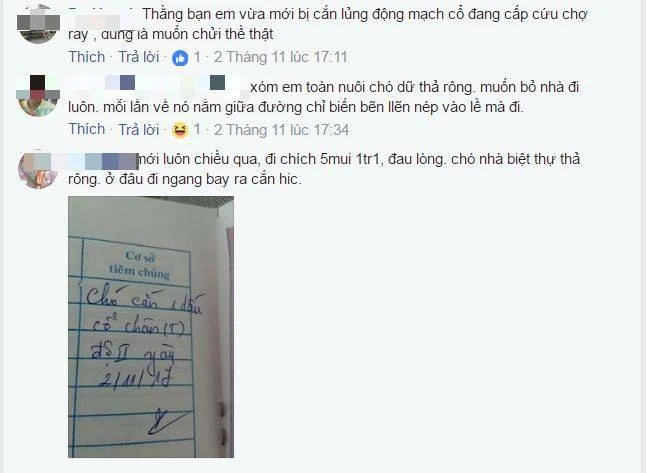 Thằng bạn em vừa mới bị cắn lủng động mạch cổ đang cấp cứu chợ
rẫy , đúng là muốn chửi thề thật
Thích · Trả lời · 1 · 2 Tháng 11 lúc 17:11
xóm em toàn nuôi chó dữ thả rông. muốn bỏ nhà đi
luôn. mỗi lần về nó nằm giữa đường chỉ biến bẽn llẽn nép vào lề mà đi.
Thích · Trả lời · 1 · 2 Tháng 11 lúc 17:34
mới luôn chiều qua, đi chích 5mui 1tr1, đau lòng. chó nhà biệt thự thả
rông. ở đâu đi ngang bay ra cắn hic.
Cơ sở
tiêm chủng
Chó cắn 1 dấu
cổ chân (T)
độ II ngày
2/11/17